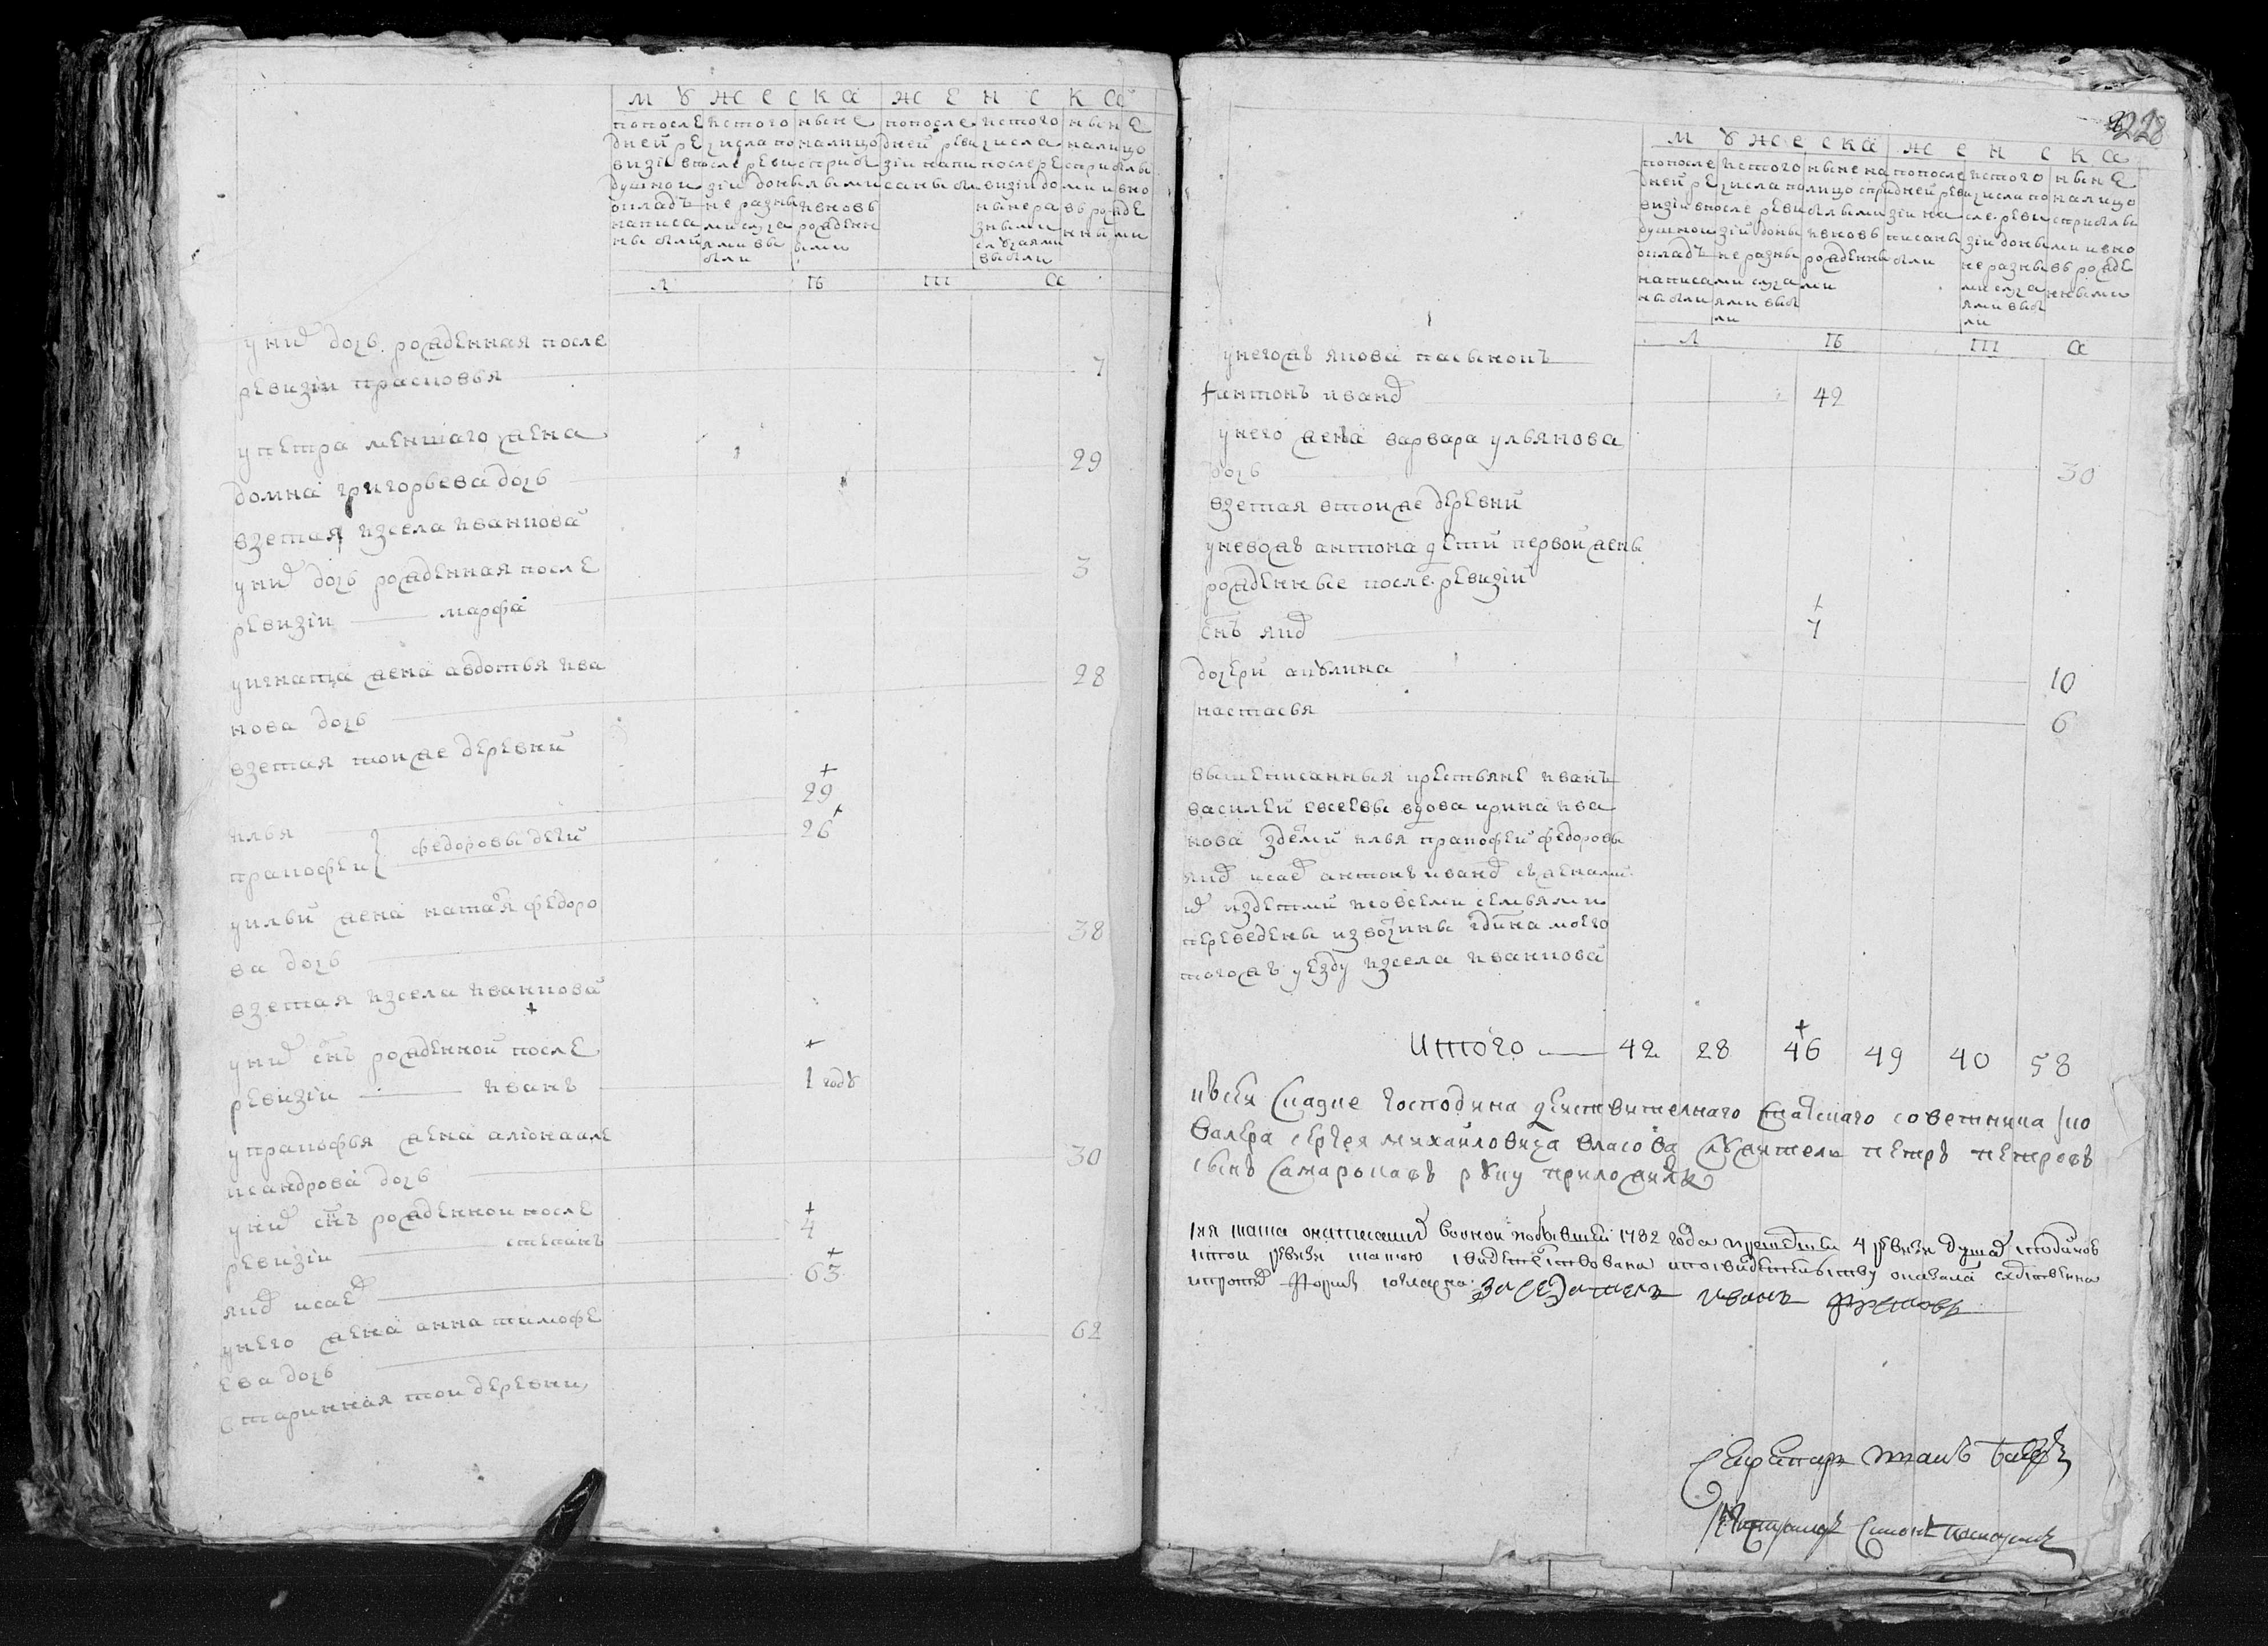 мужеска женска
попосле
дней ре
визіи в
душной
окладъ
написа
ны были
истого
числа по
сле реви
зіи доны
не разны
ми случа
ями вы
были
ныне
налицо
с прибы
лыми
и вновь
рожденн
ыми
попосле
дней реви
зіи напи
саны были
истого
числа
после ре
визіи до
ныне ра
зными
случаями
выбыли
ныне
налицо
с прибылы
ми и вно
вь рожде
нными
Л ІЬ ІІІ а
у них дочь рожденная после
ревизіи прасковья 7
у петра меншаго жена
домна григорьева дочь 29
взетая изсела иванкова
у них дочь рожденная после
ревизіи марфа 3
у игната жена авдотья ива
нова дочь 28
взетая той же деревни
илья 29
пракофей федоровы дети 26
у ильи жена наталя федоро
ва дочь 38
взетая изсела иванкова
у них снъ рожденной после
ревизіи иванъ 1 году
у пракофья жена алiона але
ксандрова дочь 30
у них снъ рожденной после
ревизіи степанъ 4
яков исаев 63
у него жена анна тимофе
ева дочь 62
старинная той деревни
228
мужеска женска
попосле
дней ре
визіи в
душной
окладъ
написа
ны были
истого
числа по
сле реви
зіи доны
не разны
ми случа
ями выбы
ли
ныне на
лицо с при
былыми
и вновь
рожденны
ми
попосле
дней реви
зіи на
писаны
были
истого
числа по
сле реви
зіи доны
не разны
ми случа
ями выбы
ли
ныне
налицо
с прибылы
ми и вно
вь рожде
нными
Л ІЬ ІІІ а
у негожъ якова пасынокъ
антонъ иванов 42
у него жена варвара ульянова
дочь 30
взетая в той же деревни
у невожъ антона дети первой жены
рожденные после ревизіи
снъ яков 7
дочери акулина 10
настасья 6
вышеписанныя крестьяне иванъ
василей евсевы вдова ирина ива
нова здетми илья пракофей федоровы
яков исаев антонъ иванов съ женами
и здетми и со всеми семьями
переведены из вотчины гдина моего
тогожъ уезду изсела иванкова
Итого 42 28 46 49 40 58
къ сей скаске господина действителнаго статскаго советника и ко
валера сергея михайловича власова служитель петръ петровъ
сынъ самароковъ руку приложилъ
заседатель иванъ
секретарь